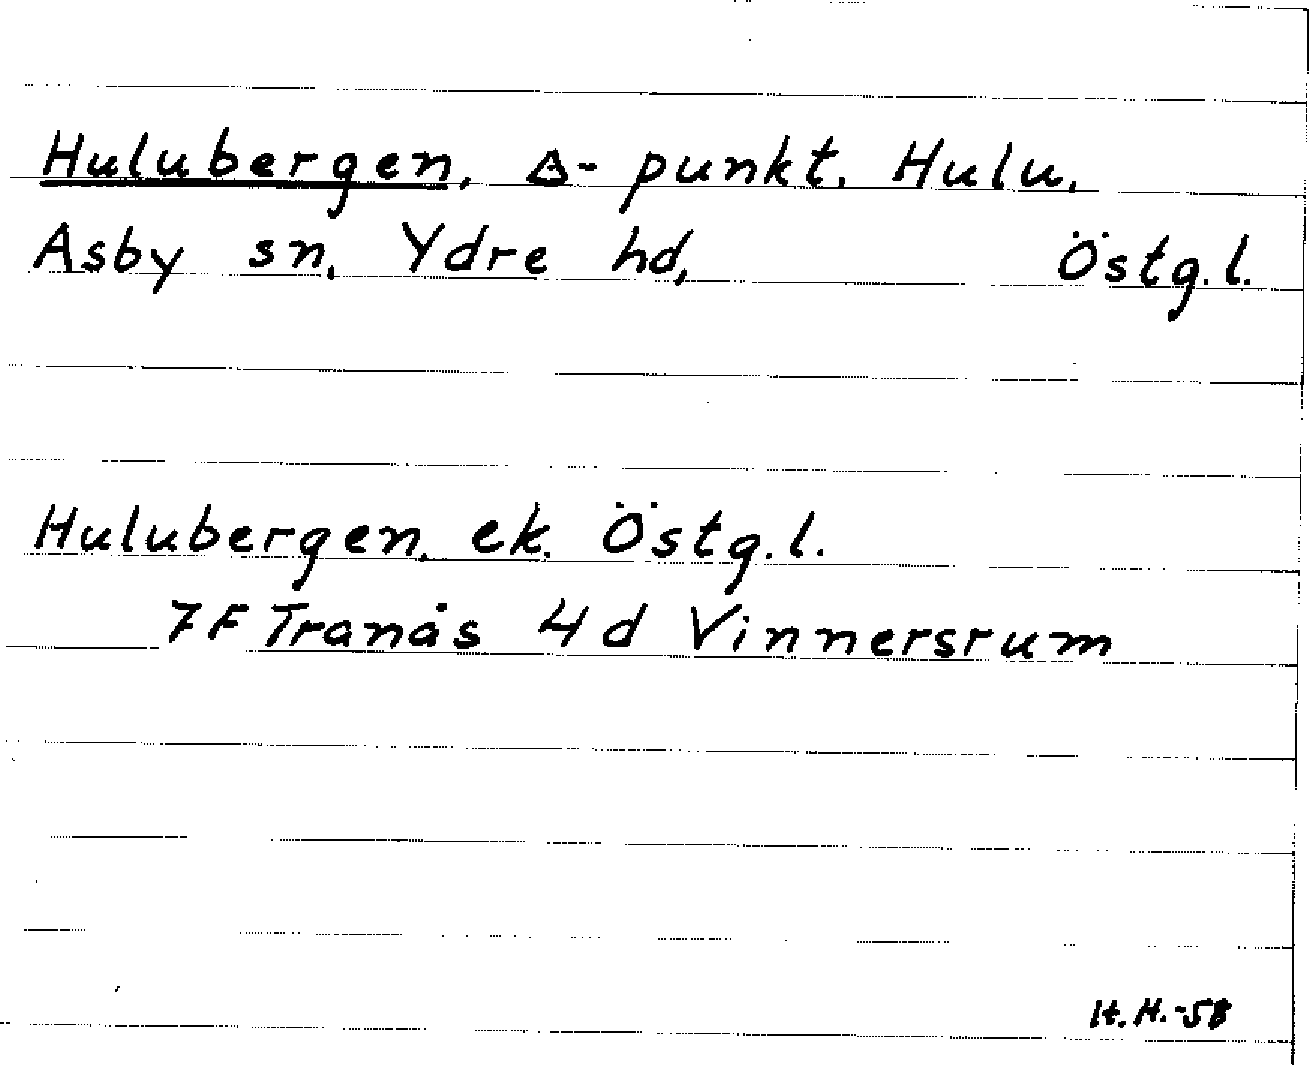 Hulubergen, Δ-punkt. Hulu,
Asby sn, Ydre hd, Östg.l.
Hulubergen, ek. Östg.l.
7F Tranås 4d Vinnersrum
H.H.-58